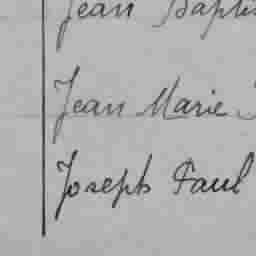 Jean Baptis
Jean Marie
Joseph Paul